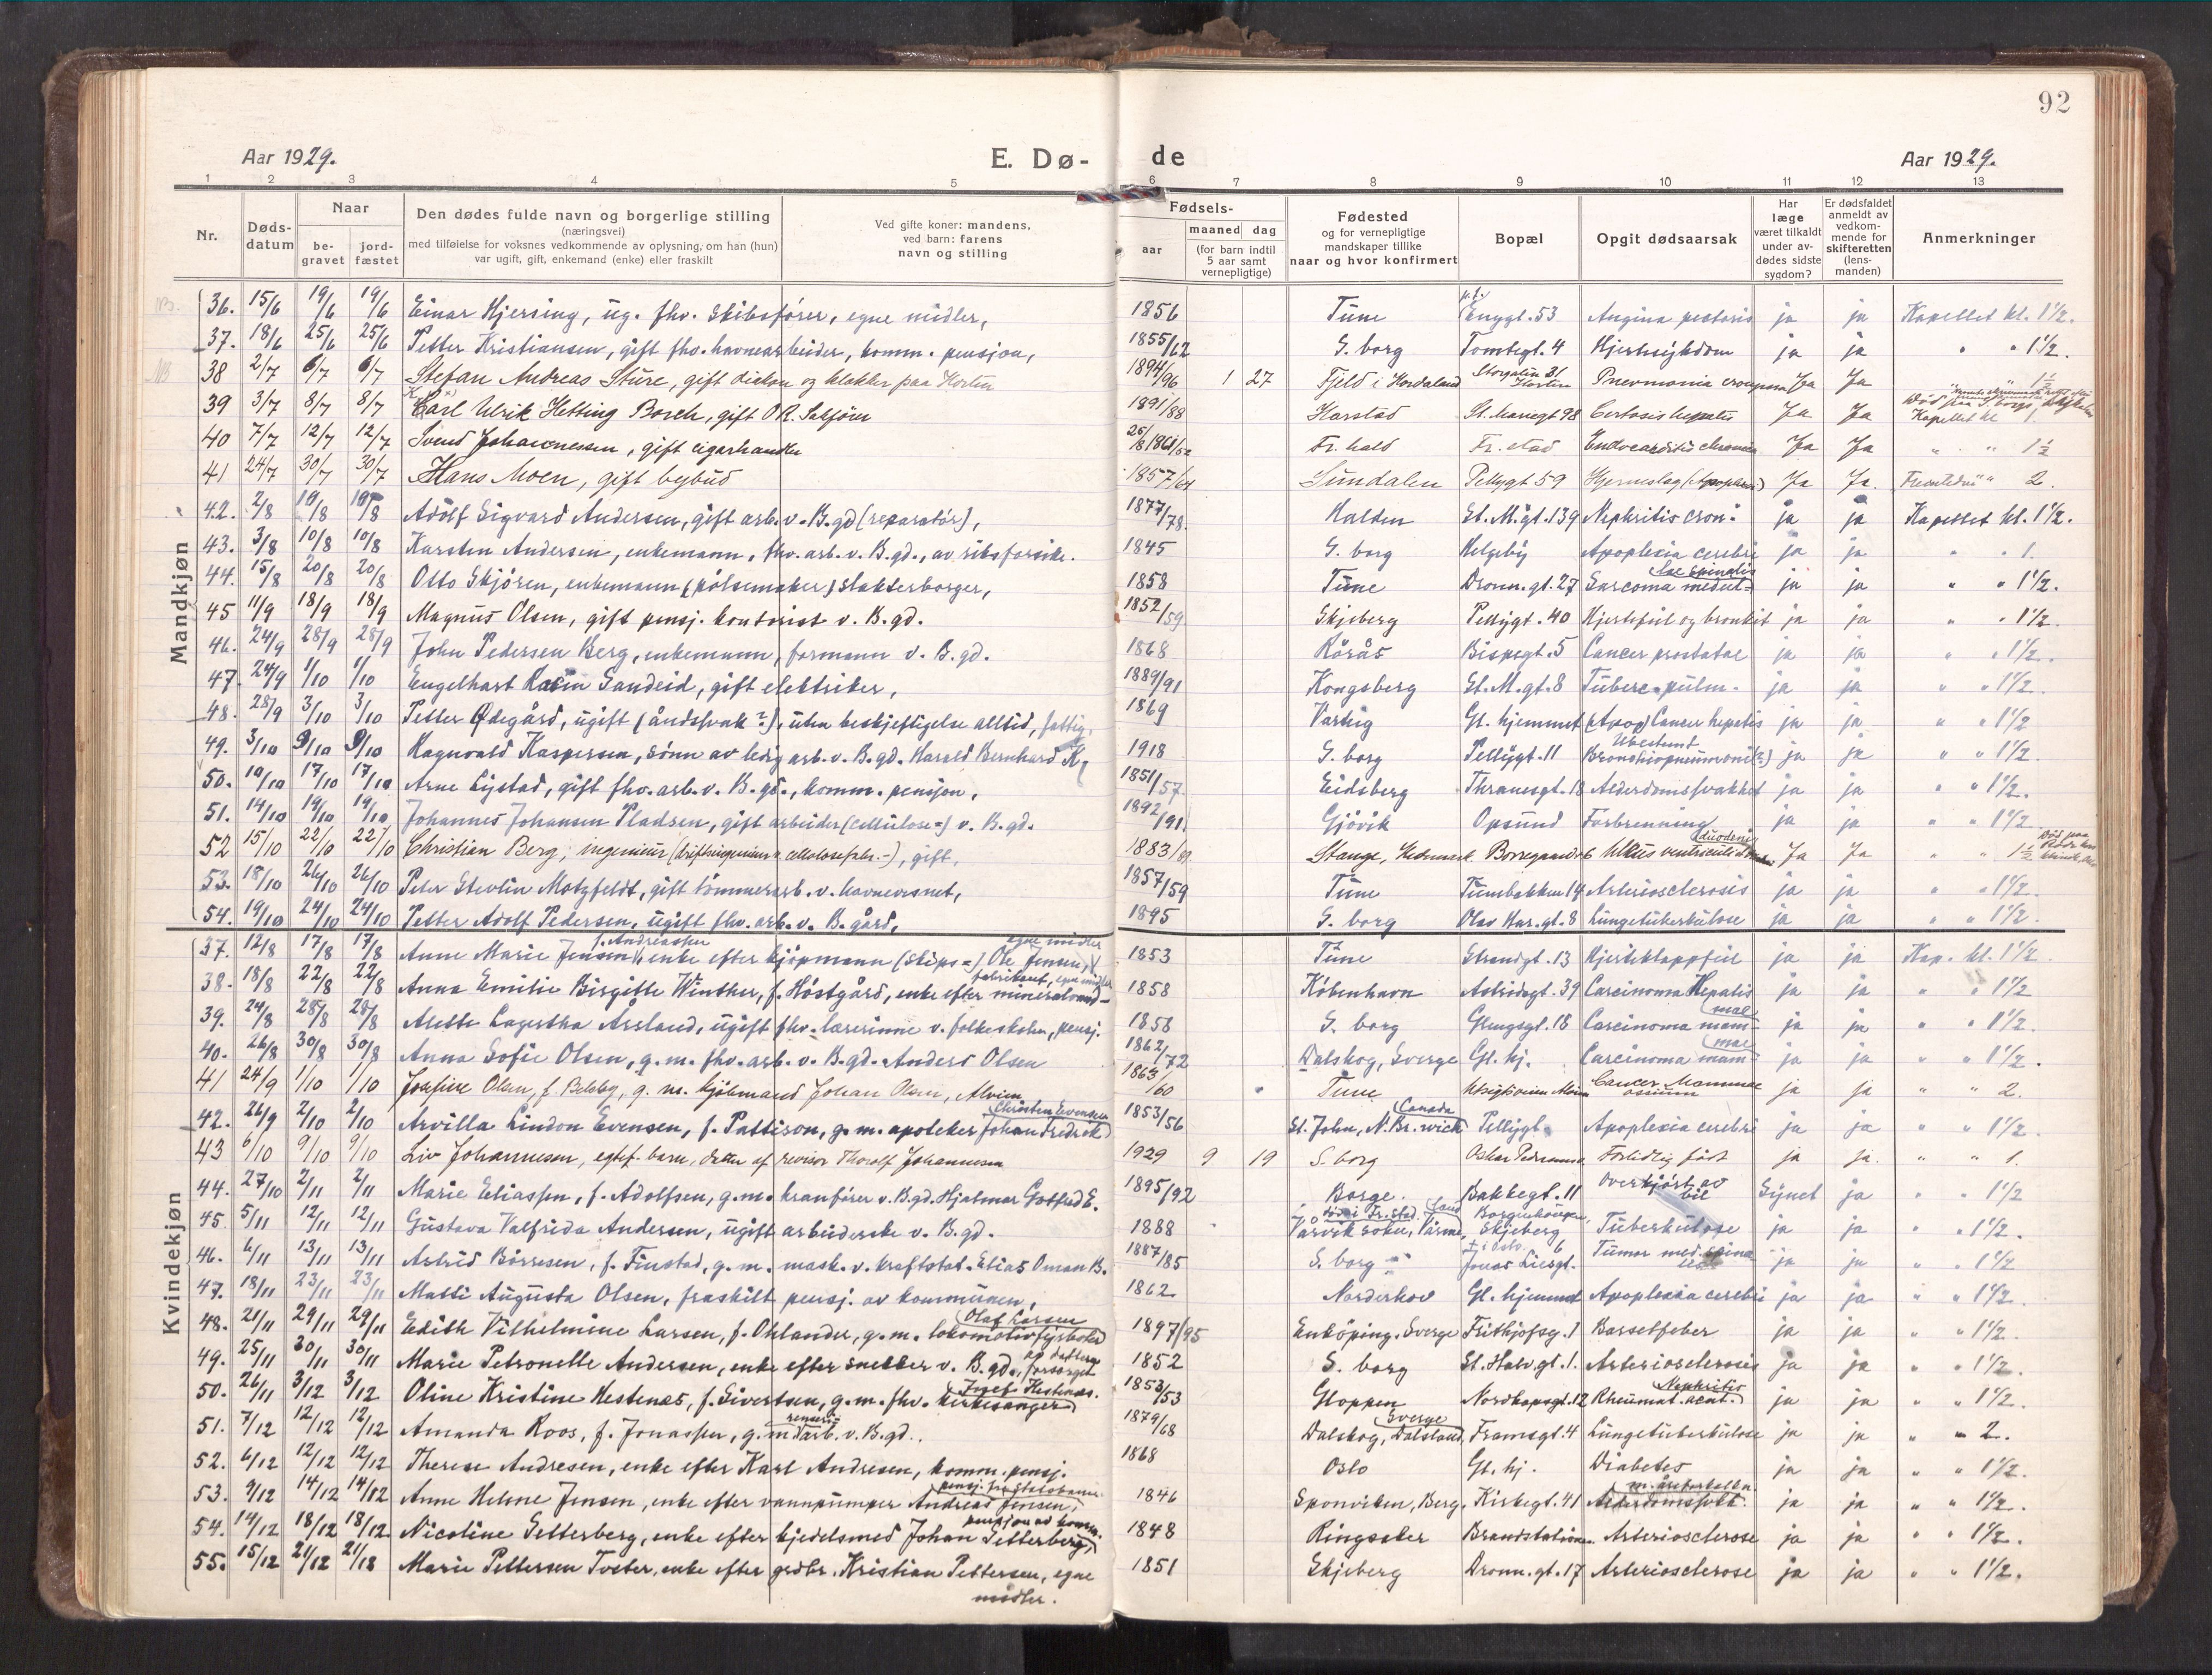 92
Aar 1929. E. Dø- de Aar 1929.
1 2 3 4 5 6 7 8 9 10 11 12 13
Nr. Døds-datum Naar be-gravet jord-fæstet Den dødes fulde navn og borgerlige stilling (næringsvei) med tilføielse for voksnes vedkommende av oplysning, om han (hun) var ugift, gift, enkemand (enke) eller fraskilt Ved gifte koner: mandens, ved barn: farens navn og stilling Fødsels- aar maaned dag (for barn indtil 5 aar samt vernepligtige) Fødested og for vernepligtige mandskaper tillike naar og hvor konfirmert Bopæl Opgit dødsaarsak Har læge været tilkaldt under av-dødes sidste sygdom? Er dødsfaldet anmeldt av vedkom-mende for skifteretten (lens-manden) Anmerkninger
Mandkjøn
NB. 36. 15/6 19/6 19/6 Einar Hjersing, ug. fhv. skibsfører, egne midler, 1856 Tune Engygt. 53 Angina pectoris ja ja Kapellet kl. 1 1/2.
37. 18/6 25/6 25/6 Petter Kristiansen, gift fhv. havnearbeider, komm. pensjon, 1855/62 S. borg Tomtegt. 4 Hjertesykdom ja ja " " 1 1/2.
NB 38 2/7 6/7 6/7 Stefan Andreas Sture, gift diakon og klokker paa Horten 1894/96 1 27 Fjeld i Hordaland Storgaten 31 Horten Pneumonia crouposa Ja Ja 1 1/2
39 3/7 8/7 8/7 Carl Ulrik Hetting Borch, gift O.R. Sakfører 1891/88 Harstad St. Mariegt 98 Certosis hepatis Ja Ja Kapellet kl 1.
40 7/7 12/7 12/7 Svend Johannessen, gift cigarhandler Fr. hald Fr. stad Endocarditis chronica Ja Ja " " 1 1/2
41 24/7 30/7 30/7 Hans Moen, gift bybud 1857/64 Sundalen Pellygt 59 Hjerneslag (Apoplexi) Ja Ja. " 2.
42. 2/8 10/8 10/8 Adolf Sigvard Andersen, gift arb. v. B.gd (reparatør), 1877/78. Halden St. M.gt. 139 Nephritis cron. ja ja Kapellet kl. 1 1/2.
43. 3/8 10/8 10/8 Karsten Andersen, enkemann, fhv. arb. v. B.gd., av riksforsikr. 1845 S. borg Helgeby Apoplexia cerebri ja ja " " 1.
44. 15/8 20/8 20/8 Otto Skjören, enkemann (pølsemaker) slakterborger, 1858 Tune Dronn. gt. 27 Sarcoma medul-lae spinalis ja ja " " 1 1/2.
45 11/9 18/9 18/9 Magnus Olsen, gift pensj. kontorist v. B.gd. 1852/59 Skjeberg Pellygt. 40 Hjertefeil og bronkit ja ja " " 1 1/2.
46. 24/9 28/9 28/9 John Pedersen Berg, enkemann, formann v. B.gd. 1868 Rörås Bispegt. 5 Cancer prostatae ja ja " " 1 1/2.
47. 24/9 1/10 1/10 Engelhart Sandeid, gift elektriker, 1889/91 Kongsberg St. M.gt. 8 Tuberc. pulm. ja ja " " 1 1/2
48. 28/9 3/10 3/10 Petter Ødegård, ugift (åndssvak?), uten beskjeftigelse alltid, fattig. 1869 Varteig Gl. hjemmet Cancer hepatis ja ja " " 1 1/2
49. 3/10 9/10 9/10 Ragnvald Kaspersen, sönn av ledig arb. v. B.gd. Harald Bernhard K. 1918 S. borg Pellygt. 11 Ubestemt Bronchiopneumoni(?) ja ja " " 1 1/2
50. 10/10 17/10 17/10 Arne Lystad, gift fhv. arb. v. B.gd., komm. pensjon, 1851/57. Eidsberg Thranesgt. 18 Alderdomssvakhet ja ja " " 1 1/2.
51. 14/10 19/10 19/10 Johannes Johansen Pladsen, gift arbeider (cellulose=) v. B.gd. 1892/91. Gjövik Opsund Forbrenning ja ja " " 1 1/2
52 15/10 22/10 22/10 Christian Berg, ingeniør (driftsingeniør v. cellulosefabr.-), gift, 1883/ Stange, Hedmark Borregaard Ulcus ventriculi duodeni Ja Ja " " 1 1/2
53. 18/10 26/10 26/10 Peter Stevlin Motzfeldt, gift tömmerarb. v. havnevesnet, 1857/59 Tune Tunebakken 14 Arteriosclerosis ja ja " " 1 1/2.
54. 19/10 24/10 24/10 Petter Adolf Pedersen, ugift fhv. arb. v. B.gård, 1895 S. borg Olav Har. gt. 8 Lungetuberkulose ja ja " " 1 1/2.
Kvindekjøn
37. 12/8 17/8 17/8 Anne Marie Jensen f. Andreassen, enke efter kjöpmann (skips=) Ole Jensen, egne midler 1853 Tune Strandgt. 13 Hjerteklappfeil ja ja Kap. kl. 1 1/2
38. 18/8 22/8 22/8 Anna Emilie Birgitte Winther, f. Höstgård, enke efter mineralvand-fabrikant, egne midler 1858 Köbenhavn Astridsgt. 39 Carcinoma Hepatis ja ja " " 1 1/2
39. 24/8 28/8 28/8 Alette Lagertha Arsland, ugift fhv. lærerinne v. folkeskolen, pensj. 1858 S. borg Glengsgt. 18 Carcinoma mam-mae ja ja " " 1 1/2.
40. 26/8 30/8 30/8 Anna Sofie Olsen, g.m. fhv. arb. v. B.gd. Anders Olsen 1862/72 Dalskog, Sverge Gl. hj. Carcinoma mam-mae ja ja " " 1 1/2.
41 24/9 1/10 1/10 Josefine Olsen, f. Belsby, g. m. kjöbmand Johan Olsen, Alvim 1863/60 Tune Cancer Mammae ja ja " " 2.
42. 26/9 2/10 2/10 Arvilla Lindon Evensen, f. Pattison, g.m. apoteker Johan Fredrik Christen Evensen 1853/56 St. John, N. Br. wick Canada Pellygt. Apoplexia cerebri ja ja " " 1 1/2.
43 6/10 9/10 9/10 Liv Johannesen, egtef. barn, datter af revisor Thorolf Johannesen 1929 9 19 S. borg Oskar Pedersens Förtidlig född ja ja. " " 1.
44. 27/10 2/11 2/11 Marie Eliassen, f. Adolfsen, g.m. kranförer v. B.gd. Hjalmar Gotfred E. 1895/92 Borge. Bakkegt. 11 Overkjört av bil Synet ja " " 1 1/2
45. 5/11 12/11 12/11 Gustava Valfrida Andersen, ugift arbeiderske v. B.gd. 1888 Skjeberg Tuberkulose ja ja " " 1 1/2.
46. 6/11 13/11 13/11 Astrid Börresen, f. Finstad, g.m. mask. v. kraftstat. Elias Oman B. 1887/85 S. borg Jonas Liesgt. 6 Tumor med. spina ja ja " " 1 1/2
47. 18/11 23/11 23/11 Matti Augusta Olsen, fraskilt pensj. av kommunen, 1862 Norderhov Gl. hjemmet Apoplexia cerebri ja ja " " 1 1/2.
48. 21/11 29/11 29/11 Edith Vilhelmine Larsen, f. Ohlander, g.m. lokomotivfyrböter Olaf Larsen 1897/95 Enköping. Sverge Frithjofsg. 1 Barselfeber ja ja " " 1 1/2.
49. 25/11 30/11 30/11 Marie Petronelle Andersen, enke efter snekker v. B.gd., forsörget av døttrene 1852 S. borg St. Halv. gt. 1. Arteriosclerosis ja ja " " 1 1/2.
50. 26/11 3/12 3/12 Oline Kristine Hestenes, f. Sivertsen, g.m. fhv. kirkesanger Josef Hestenes. 1853/53 Gloppen Nordkapsgt. 12 Rheumat. acut. Nephritis ja ja " " 1 1/2.
51. 7/12 12/12 12/12 Amanda Roos, f. Jonassen, g. m. renseriarb. v. B.gd.. 1879/68 Dalskog, Dalsland, Sverge Framsgt. 4 Lungetuberkulose ja ja " " 2.
52. 6/12 12/12 12/12 Therese Andresen, enke efter Karl Andresen, komm. pensj. 1868 Oslo Gl. hj. Diabetes ja ja " " 1 1/2.
53. 9/12 14/12 14/12 Anne Helene Jensen, enke efter vannpumper Andreas Jensen, pensj. fra statsbaner 1846 Sponviken, Berg. Kirkegt. 41 m. åreforkalkn. ja ja " " 1 1/2.
54. 14/12 18/12 18/12 Nicoline Setterberg, enke efter kjedelsmed Johan Setterberg, pensjon av komm. 1848 Ringsaker Brandstationen Arteriosclerose ja ja " " 1 1/2.
55. 15/12 21/12 21/12 Marie Pettersen Toster, enke efter grdbr. Kristian Pettersen, egne midler. 1851 Skjeberg Dronn. gt. 17 Arteriosclerose ja ja " " 1 1/2.